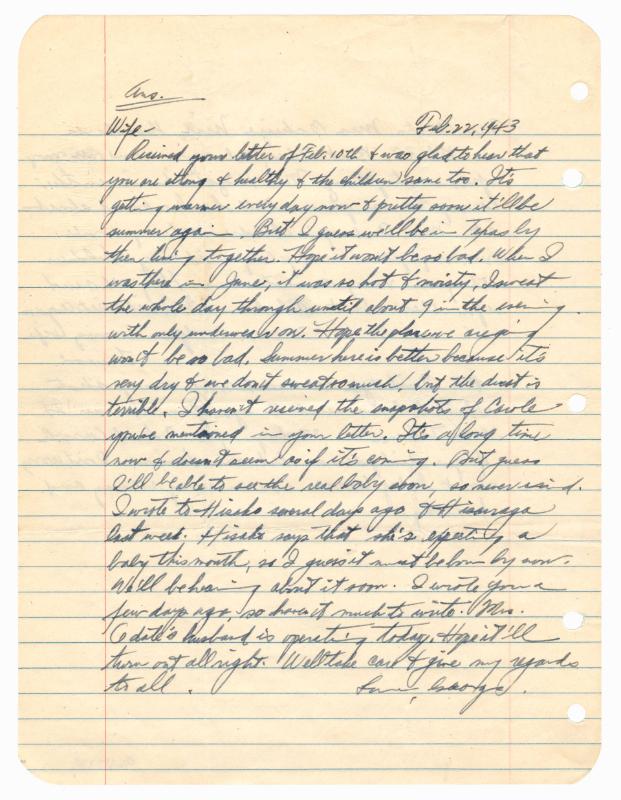 Ans.
Wife- Feb. 22, 1943
Recieved your letter of Feb. 10th & was glad to hear that
you are strong & healthy & the children same too. It's
getting warmer every day now & pretty soon it'll be
summer again. But I guess we'll be in Texas by
then living together. Hope it won't be so bad. When I
was there in June, it was so hot & moisty, I sweat
the whole day through until about 9 in the evening
with only underwears on. Hope the place we are going
won't be so bad. Summer here is better because it's
very dry & we don't sweat so much, but the dust is
terrible. I haven't recieved the snapshots of Carole
you've mentioned in your letter. It's a long time
now & doesn't seem as if it's coming. But guess
I'll be able to see the real baby soon so never mind.
I wrote to Hisako several days ago & Hisanaga
last week. Hisako says that she's expecting a
baby this month, so I guess it must be born by now.
We'll be hearing about it soon. I wrote you a
few days ago, so haven't much to write. Mrs.
Odate's husband is operating today. Hope it'll
turn out all right. Well take care & give my regards
to all. Love, George.